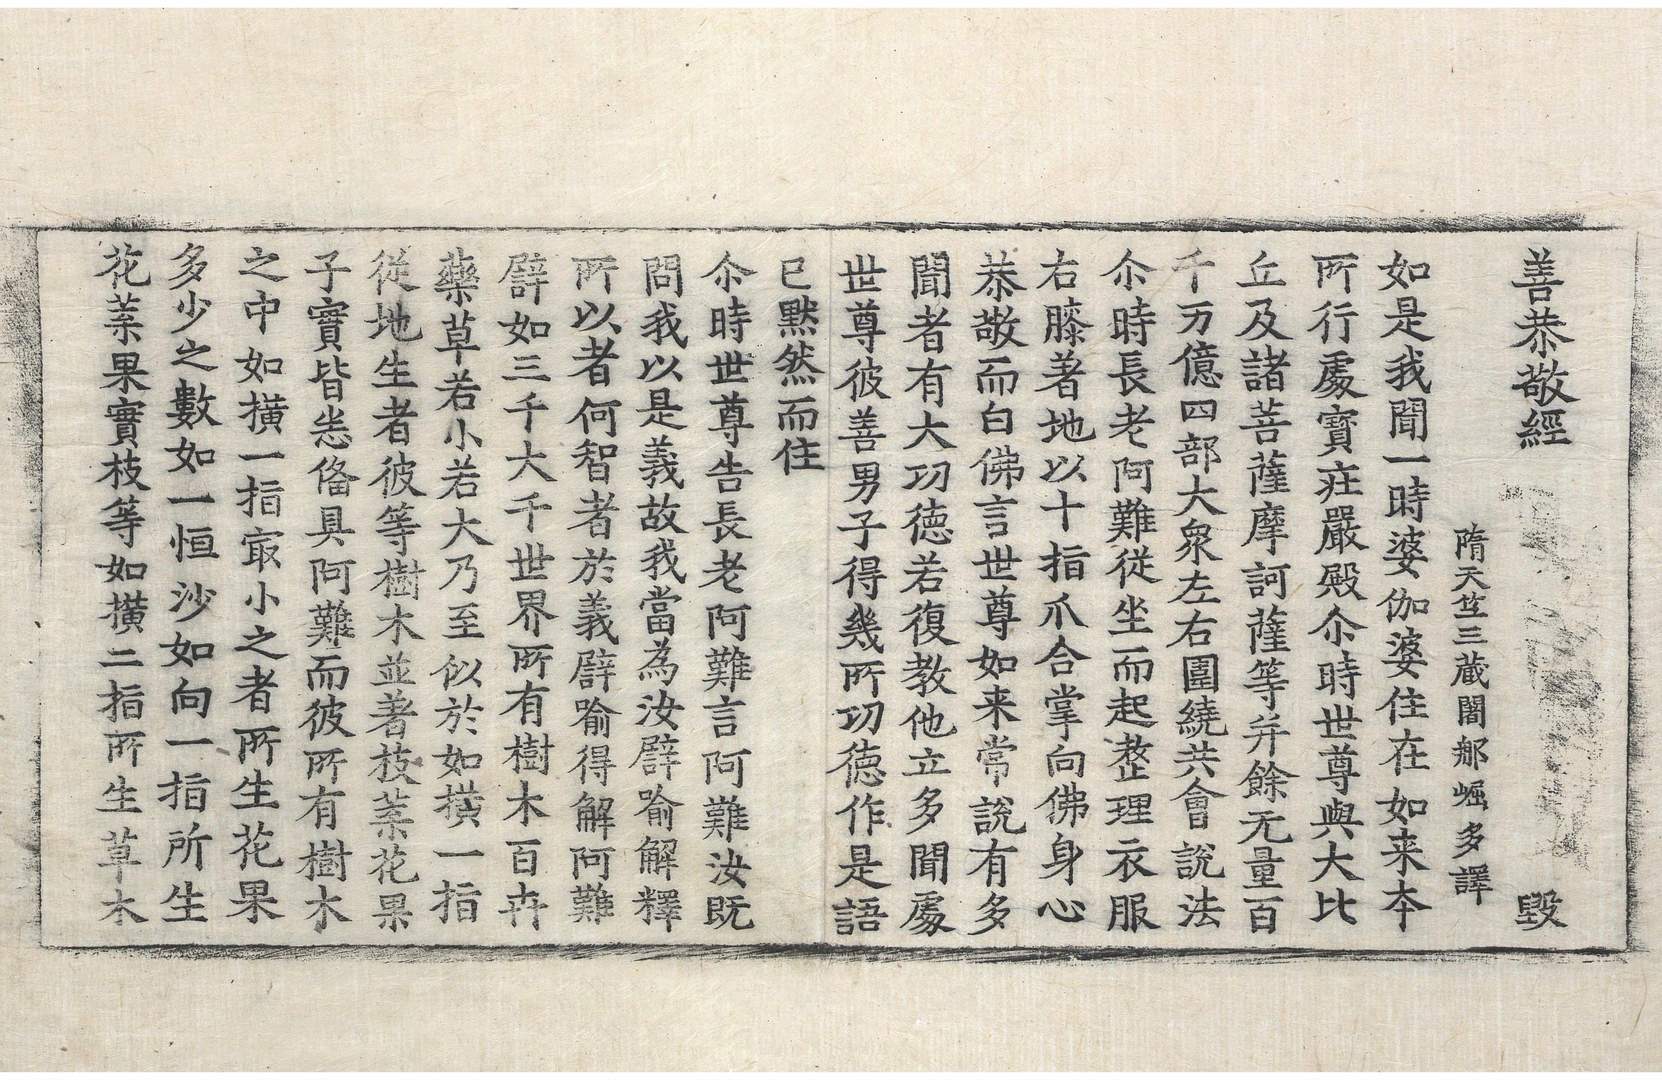 善恭敬經 毀
隋天竺三藏闍那崛多譯
如是我聞一時婆伽婆住在如来夲
所行處寶疘嚴殿尒時世尊與大比
丘及諸菩薩摩訶薩等并餘无量百
千万億四部大衆左右圍繞共會說法
尒時長老阿難從坐而起整理衣服
右膝著地以十指爪合掌向佛身心
恭敬而白佛言世尊如来常說有多
聞者有大功德若復教他立多聞處
世尊彼善男子得幾所功德作是語
已默然而住
尒時世尊告長老阿難言阿難汝既
問我以是義故我當為汝譬喻解釋
所以者何智者於義譬喻得解阿難
譬如三千大千世界所有樹木百卉
藥草若小若大乃至似於如撗一指
從地生者彼等樹木並著枝葉花果
子實皆悉俻具阿難而彼所有樹木
之中如撗一指㝡小之者所生花果
多少之數如一恒沙如向一指所生
花葉果實枝等如撗二指所生草木